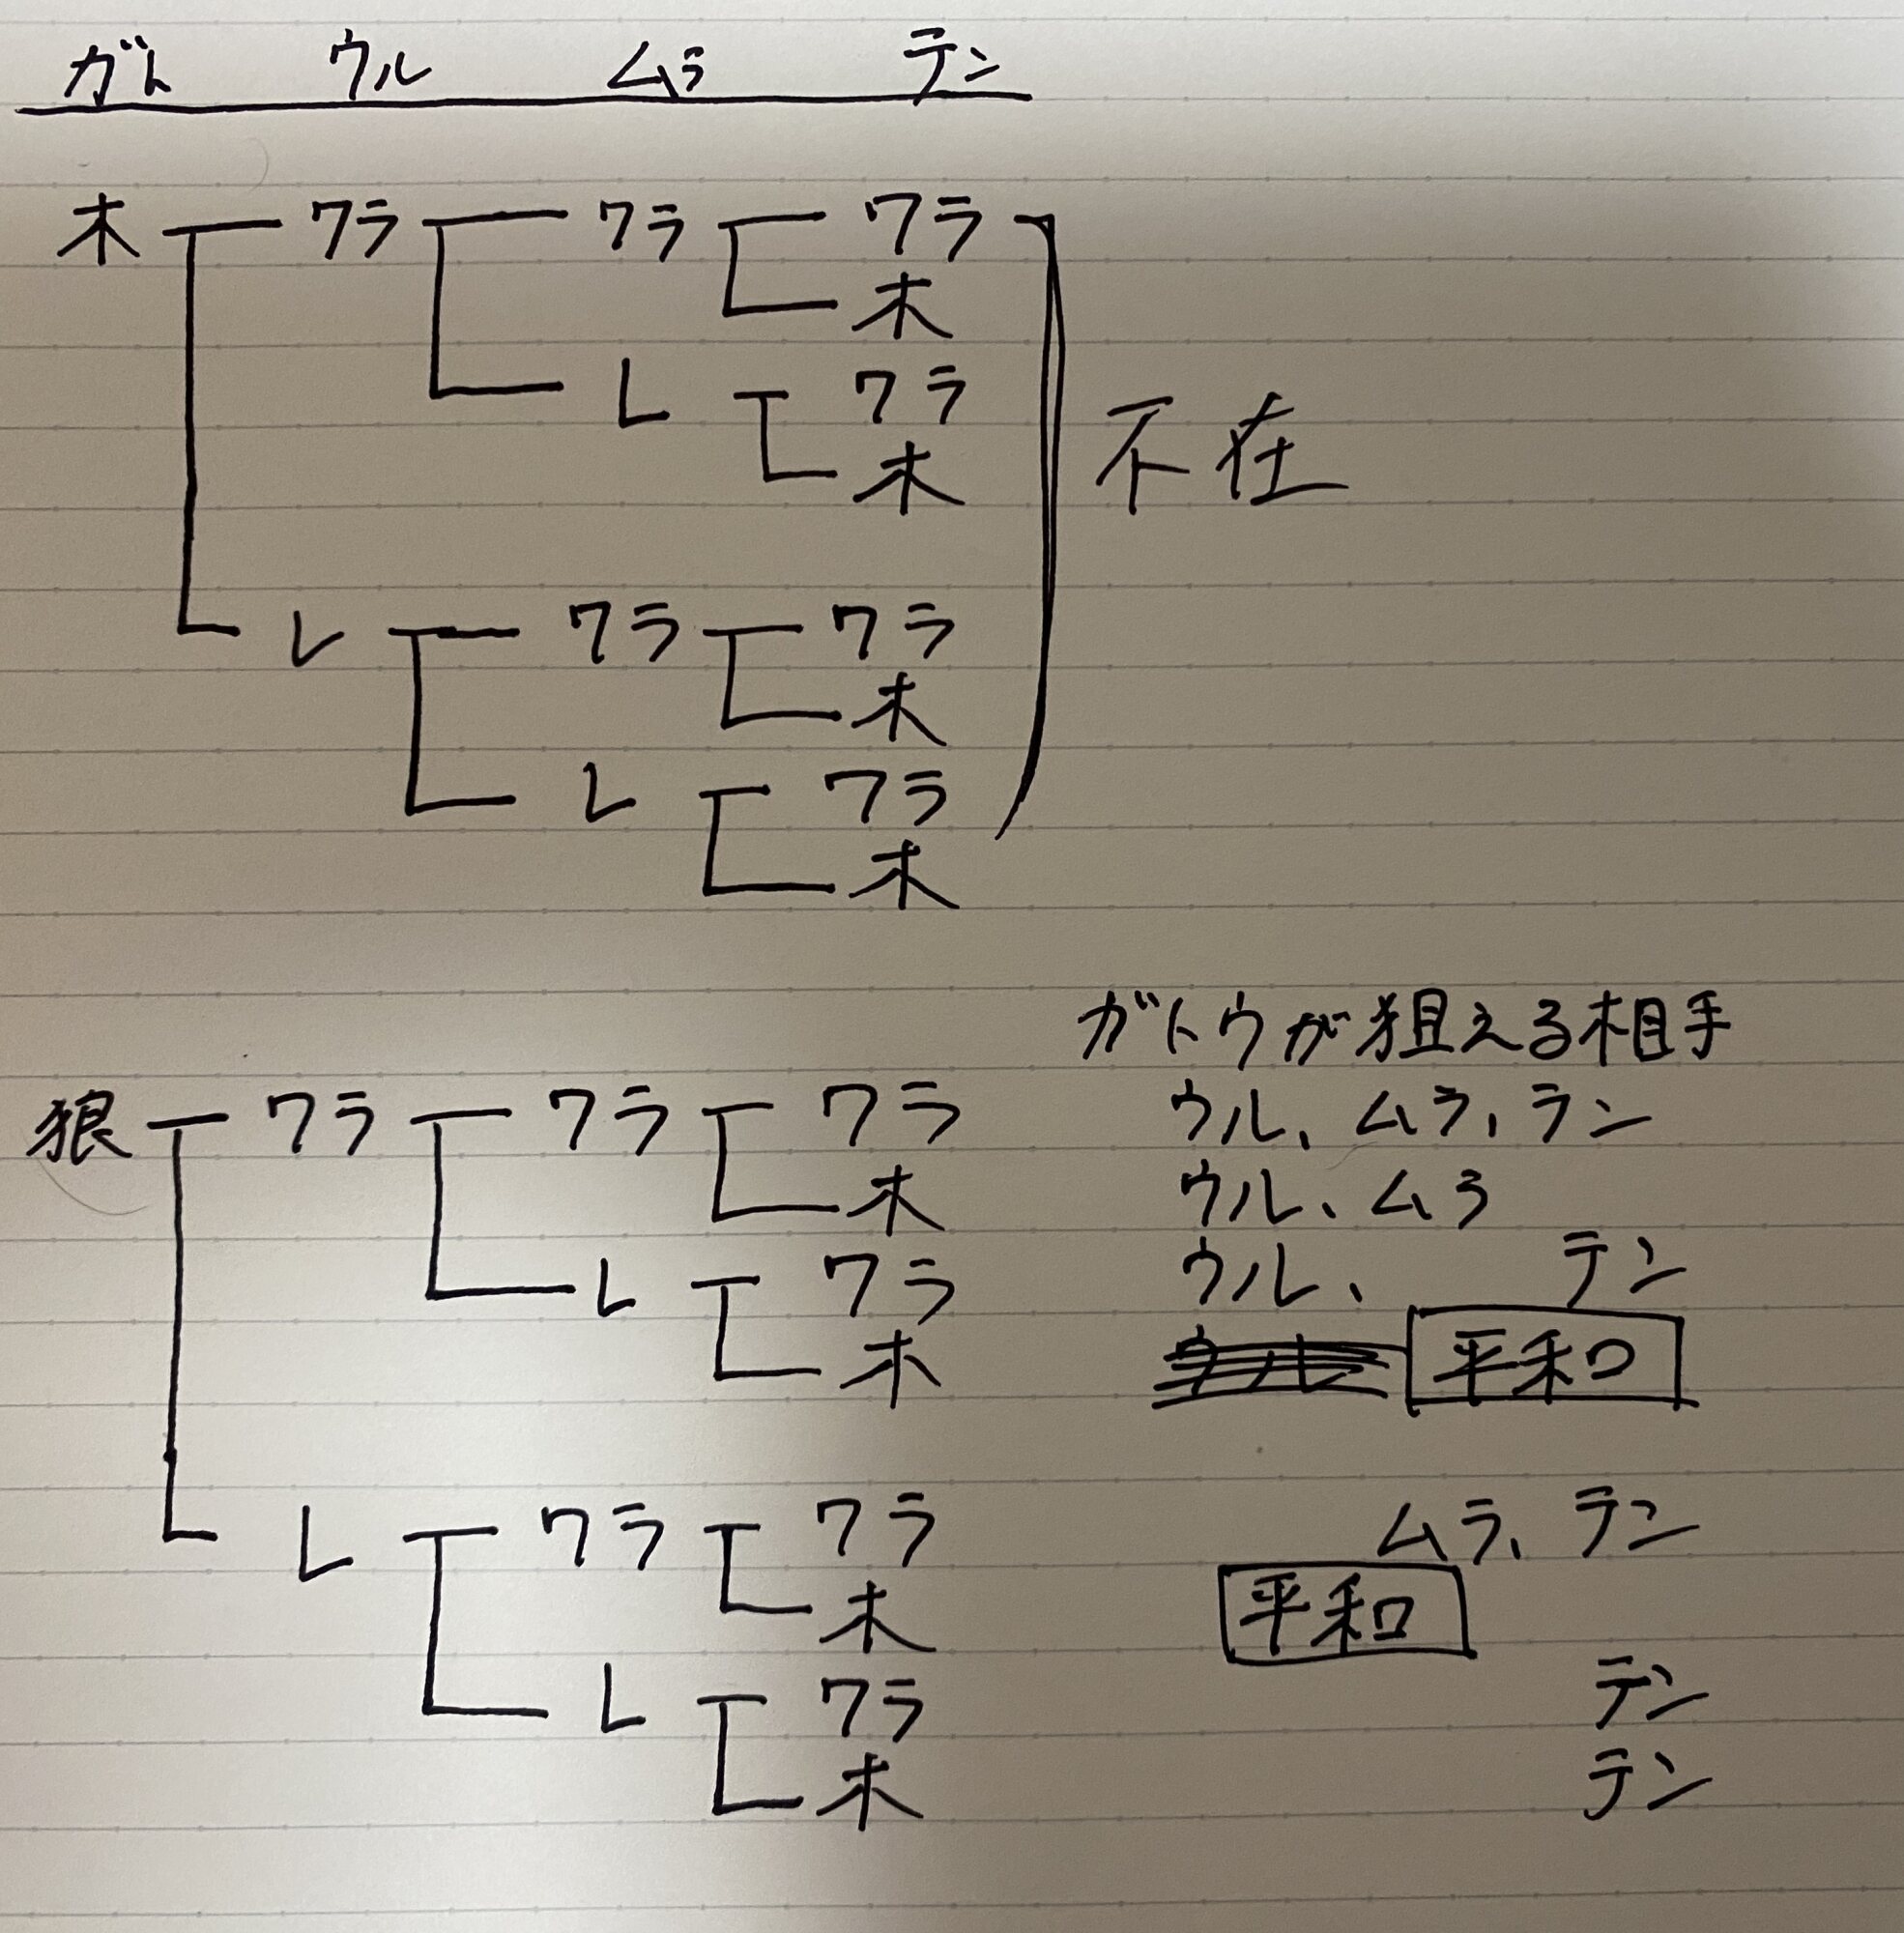 ガト ウル ムラ テン
木 ワラ ワラ ワラ
木
レ ワラ
木
不在
レ ワラ ワラ
木
レ ワラ
木
ガトウが狙える相手
狼 ワラ ワラ ワラ ウル、ムラ、テン
木 ウル、ムラ
レ ワラ ウル、 テン
木 ウル 平和
レ ワラ ワラ ムラ、テン
木 平和
レ ワラ テン
木 テン